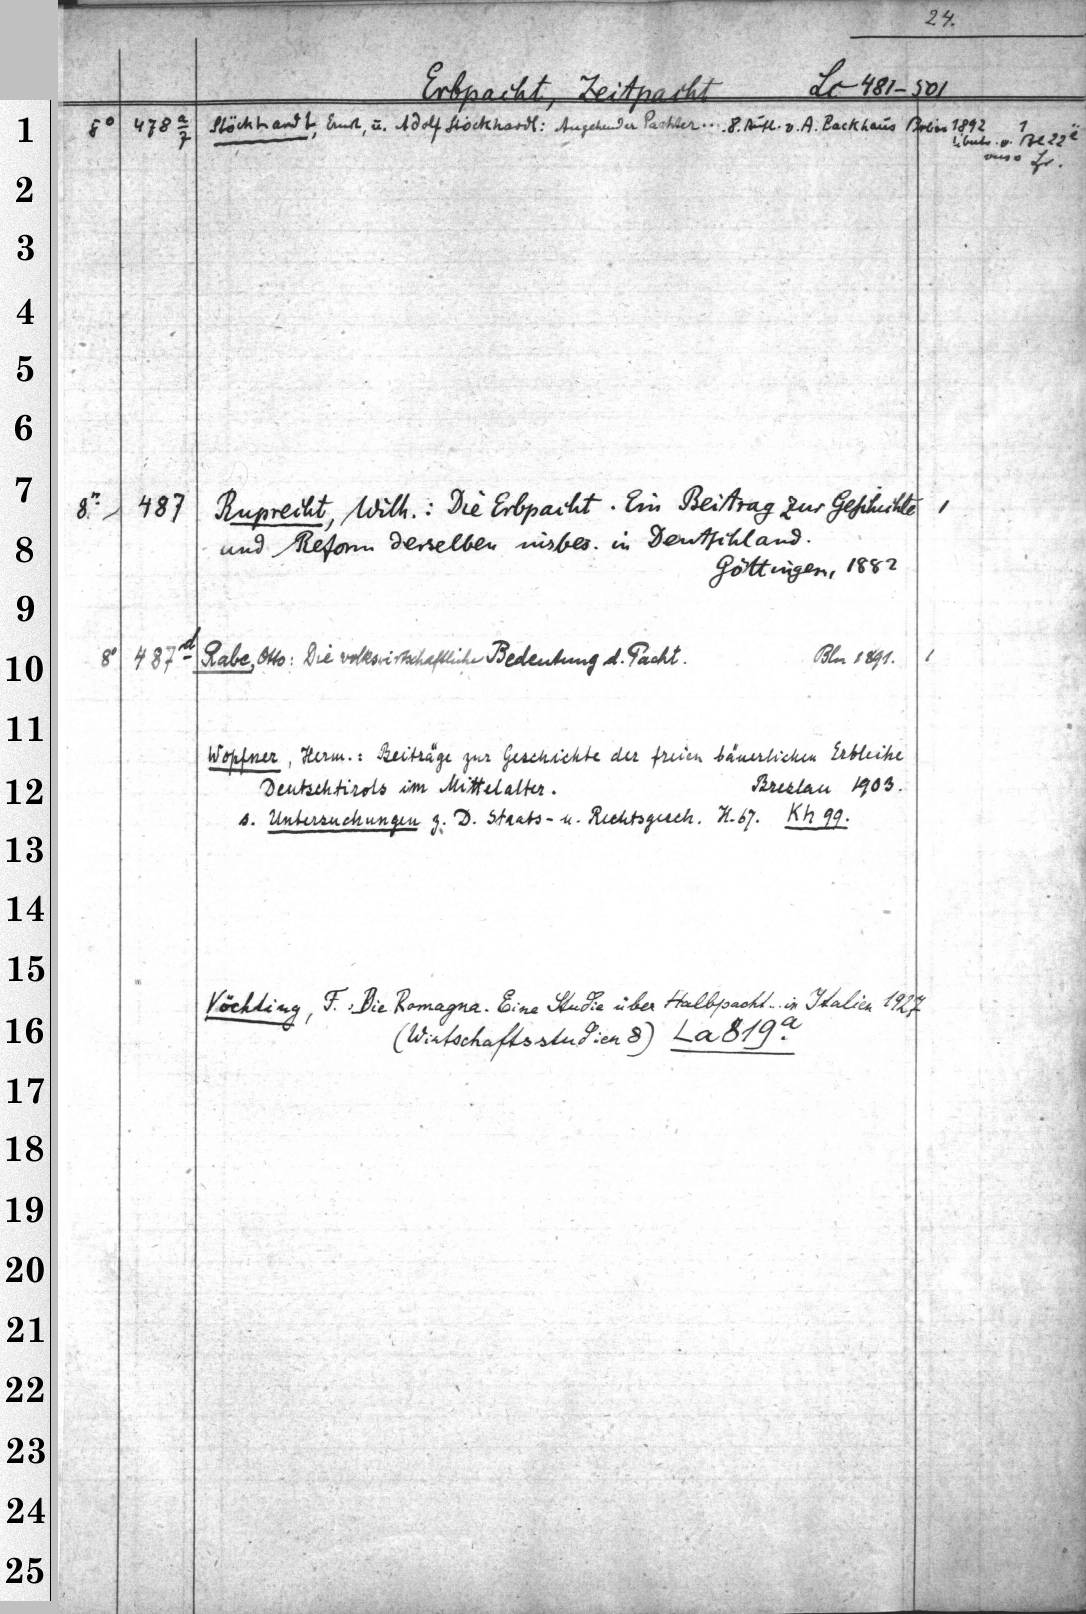 24.
Erbpacht, Zeitpacht Lc 481-501
1 8° 478 a/7 Stöckhardt, Ernst, u. Adolf Stöckhardt: Angehender Pachter... 8. Aufl. v. A. Backhaus Berlin 1892 1
2
3
4
5
6
7 8° 487 Ruprecht, Wilh.: Die Erbpacht. Ein Beitrag zur Geschichte 1
8 und Reform derselben insbes. in Deutschland.
Göttingen, 1882
9
10 8° 487d Rabe, Otto: Die volkswirtschaftliche Bedeutung d. Pacht. Bln 1891. 1
11
Wopfner, Herm.: Beiträge zur Geschichte der freien bäuerlichen Erbleihe
12 Deutschtirols im Mittelalter. Breslau 1903.
s. Untersuchungen z. D. Staats- u. Rechtsgesch. H. 67. Kh 99.
13
14
15
Vöchting, F.: Die Romagna. Eine Studie über Halbpacht.. in Italien 1927
16 (Wirtschaftsstudien 8) La 819a.
17
18
19
20
21
22
23
24
25